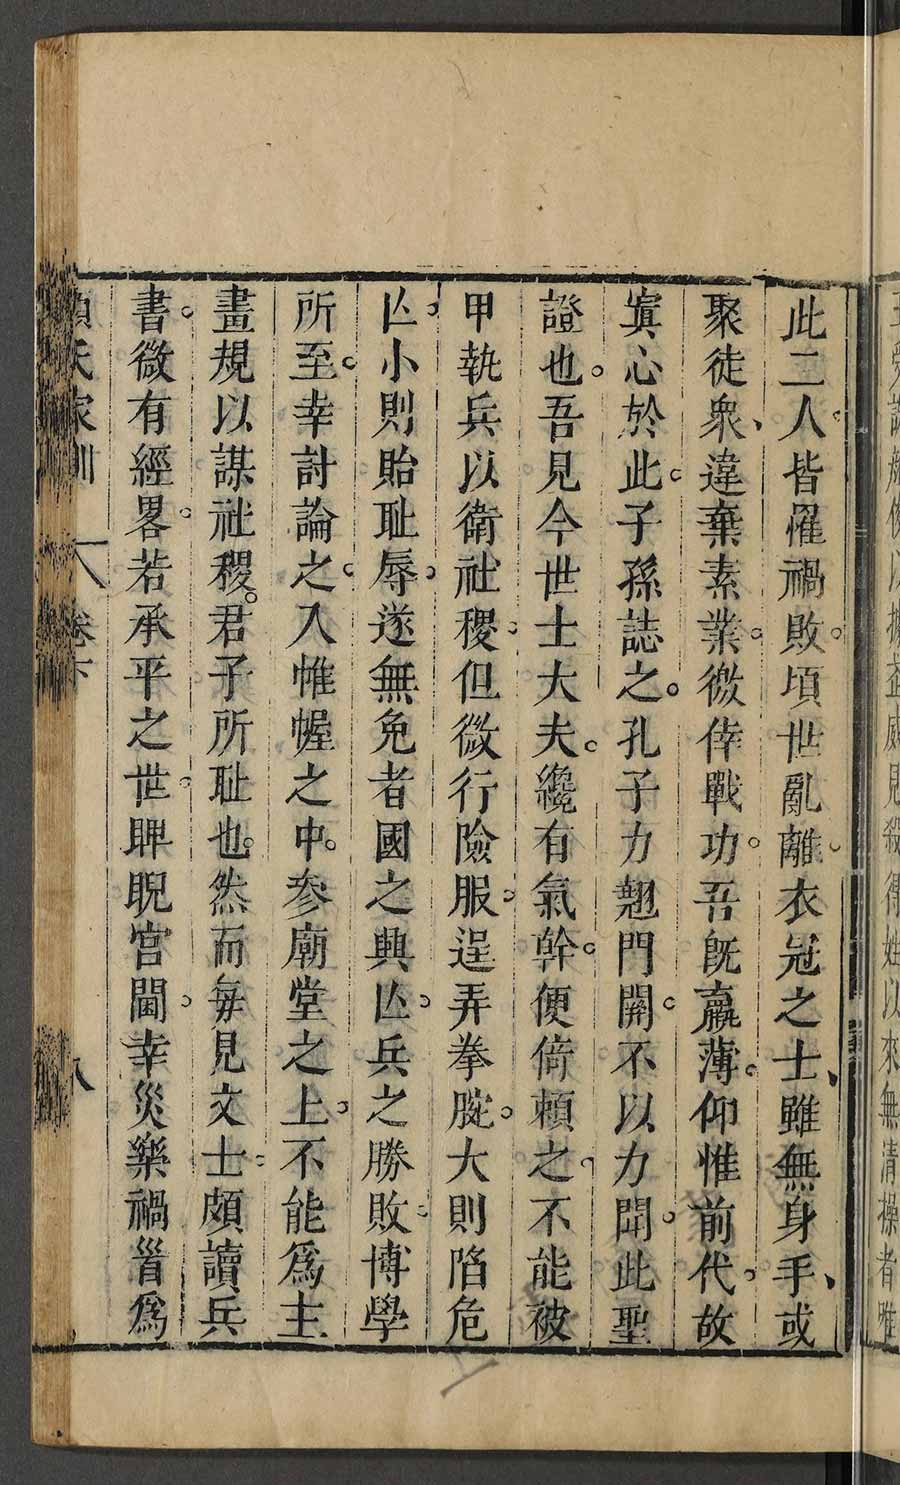 此二人皆罹禍敗頃世亂離衣冠之士雖無身手或
聚徒衆違棄素業微倖戰功吾旣羸薄仰惟前代故
寘心於此子孫誌之孔子力翹門關不以力聞此聖
證也吾見今世士大夫纔有氣幹便倚頼之不能被
甲執兵以衛社稷但微行險服逞弄拳腕大則陷危
亾小則貽耻辱遂無免者國之興亾兵之勝敗博學
所至幸討論之入帷幄之中參廟堂之上不能爲主
畫規以謀社稷君子所耻也然而每見文士頗讀兵
書微有經畧若承平之世睥睨宮閫幸災樂禍首爲
顏氏家訓 卷下 八